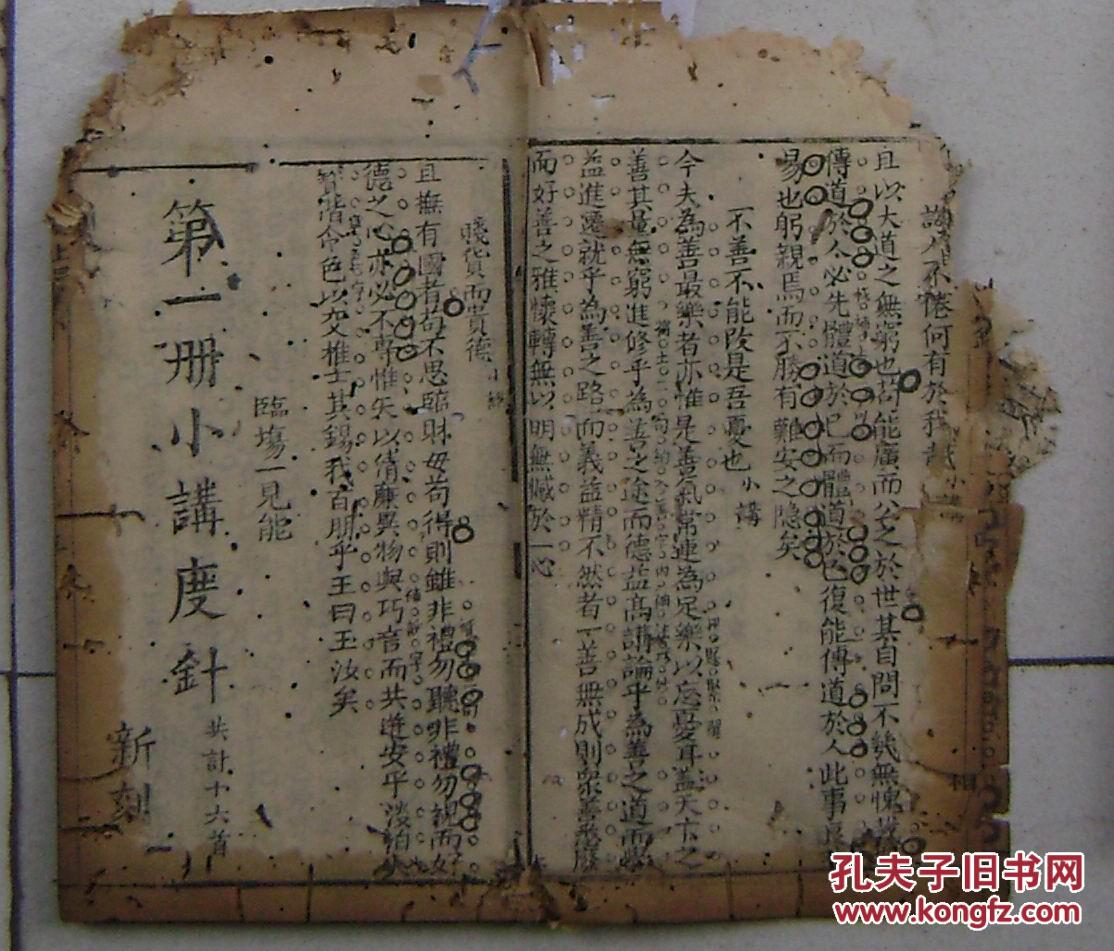 誨人不倦何有於我哉 小講
且以大道之無窮也苟能廣而公之於世其自問不幾無愧
傳道於人必先體道於己而體道於己復能傳道於人此事
易也躬親焉而不勝有難安之隱矣
不善不能改是吾憂也 小講
今夫為善最樂者亦惟是善氣常連為足樂以忘憂耳蓋天下之
善其量無窮進修乎為善之途而德益高講論乎為善之道而學
益進遷就乎為善之路而義益精不然者一善無成則衆善
而好善之雅懷轉無以明無憾於一心
賤貨而貴德
且撫有國者苟不思臨財毋苟得則雖非禮勿聽非禮勿視而好
德之心亦必不專惟矢以清廉異物與巧言而共遊安乎淡怕
皆令色以交推士其錫我百朋乎王曰玉汝矣
臨塲一見能
第一册小講度針 共計十六首
新刻
孔夫子旧书网
www.kongfz.com